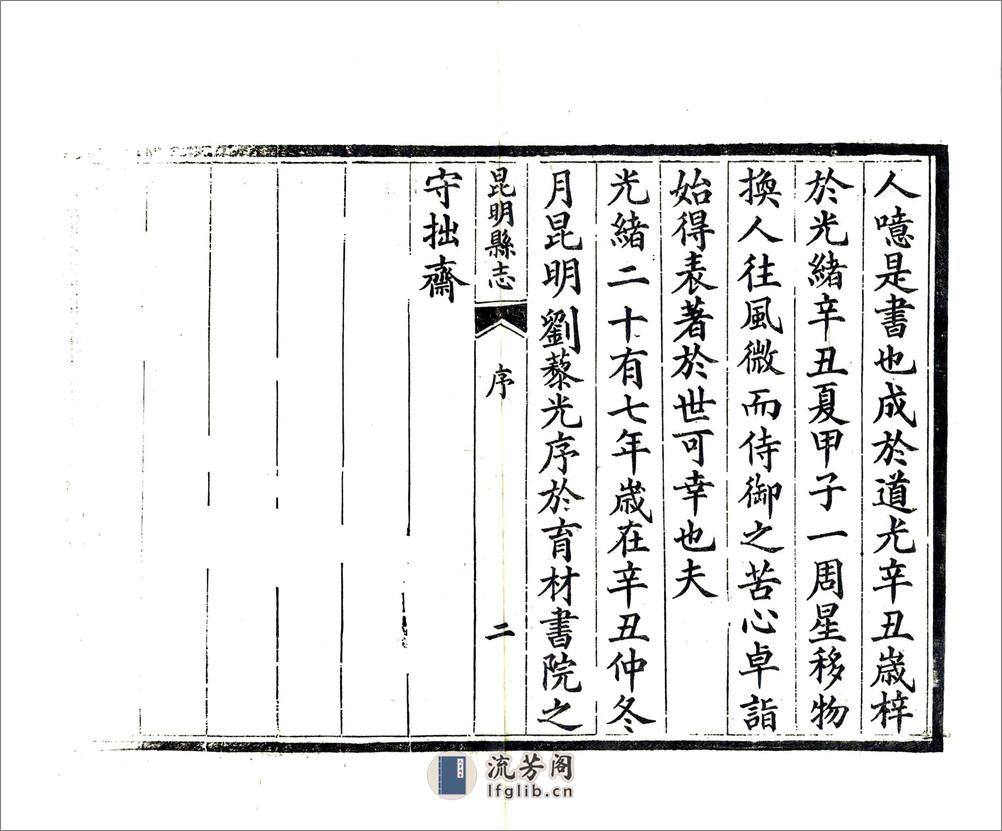 人噫是書也成於道光辛丑歲梓
於光緒辛丑夏甲子一周星移物
換人往風微而侍御之苦心卓詣
始得表著於世可幸也夫
光緒二十有七年歲在辛丑仲冬
月昆明劉藜光序於育材書院之
昆明縣志 序 二
守拙齋
流芳阁
lfglib.cn